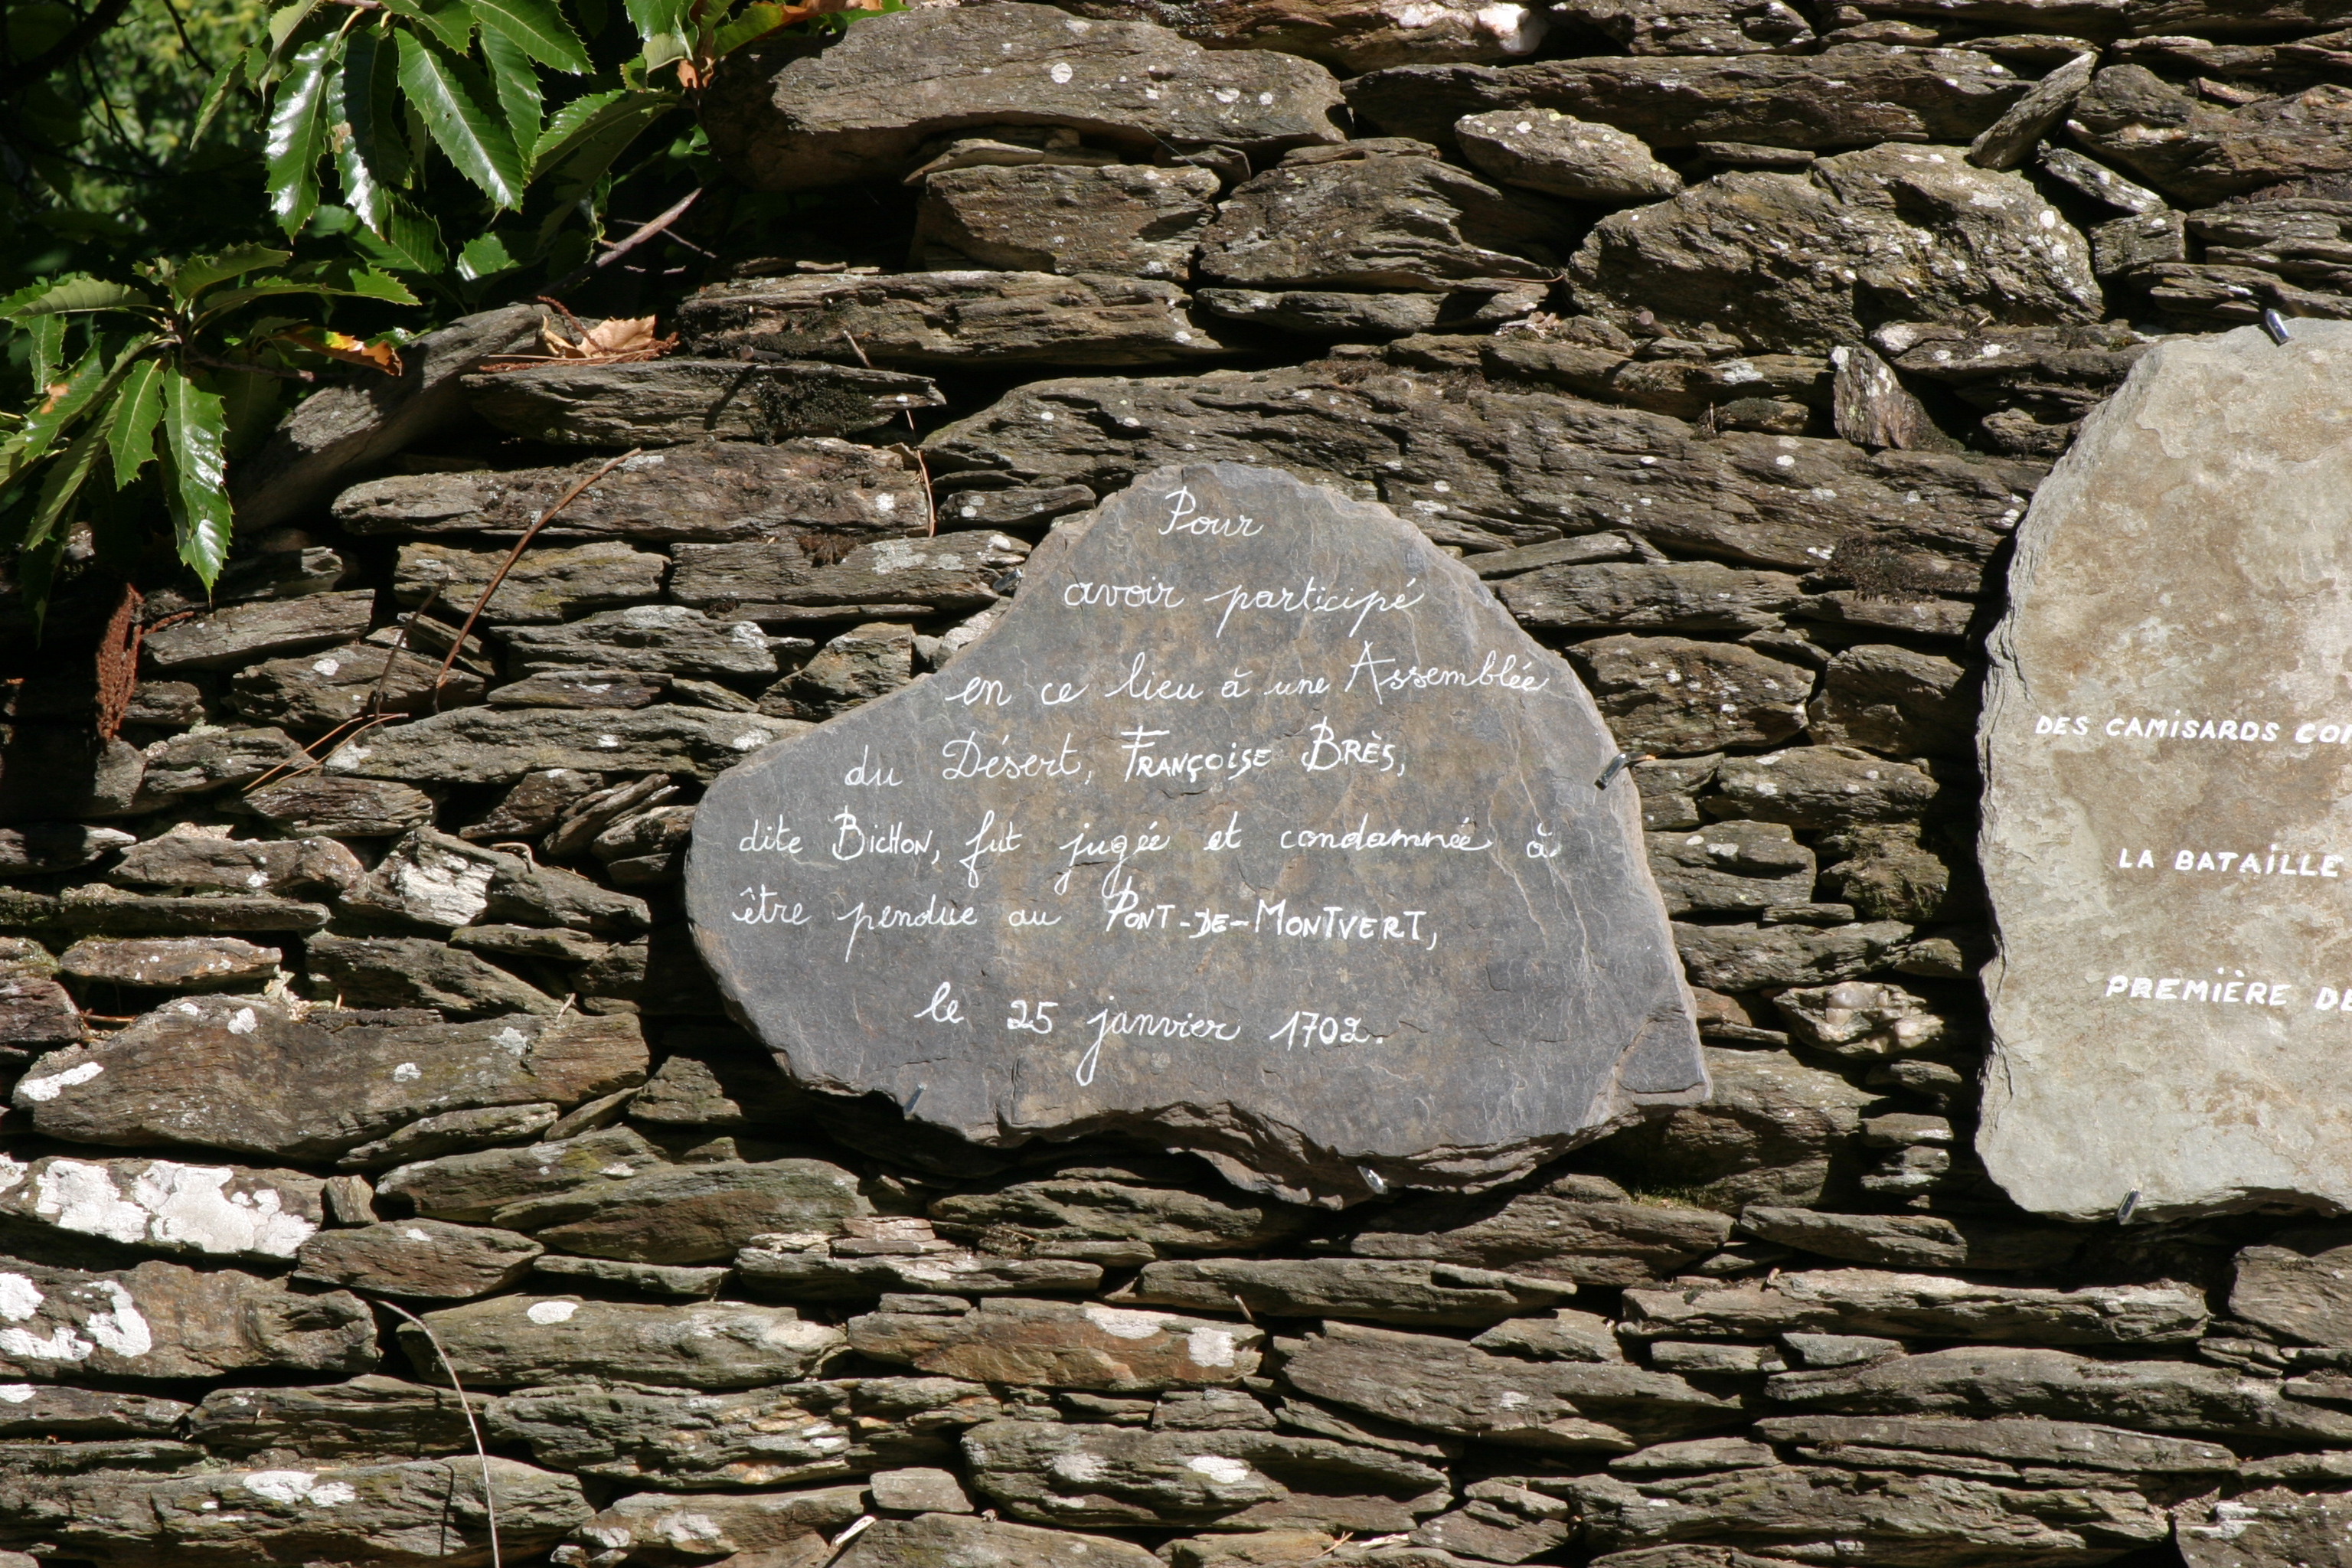 Pour
avoir participé
en ce lieu à une Assemblée
du Désert, FRANÇOISE BRÈS,
dite BICHON, fut jugée et condamnée à
être pendue au PONT-DE-MONTVERT,
le 25 janvier 1702.
DES CAMISARDS
LA BATAILLE
PREMIÈRE